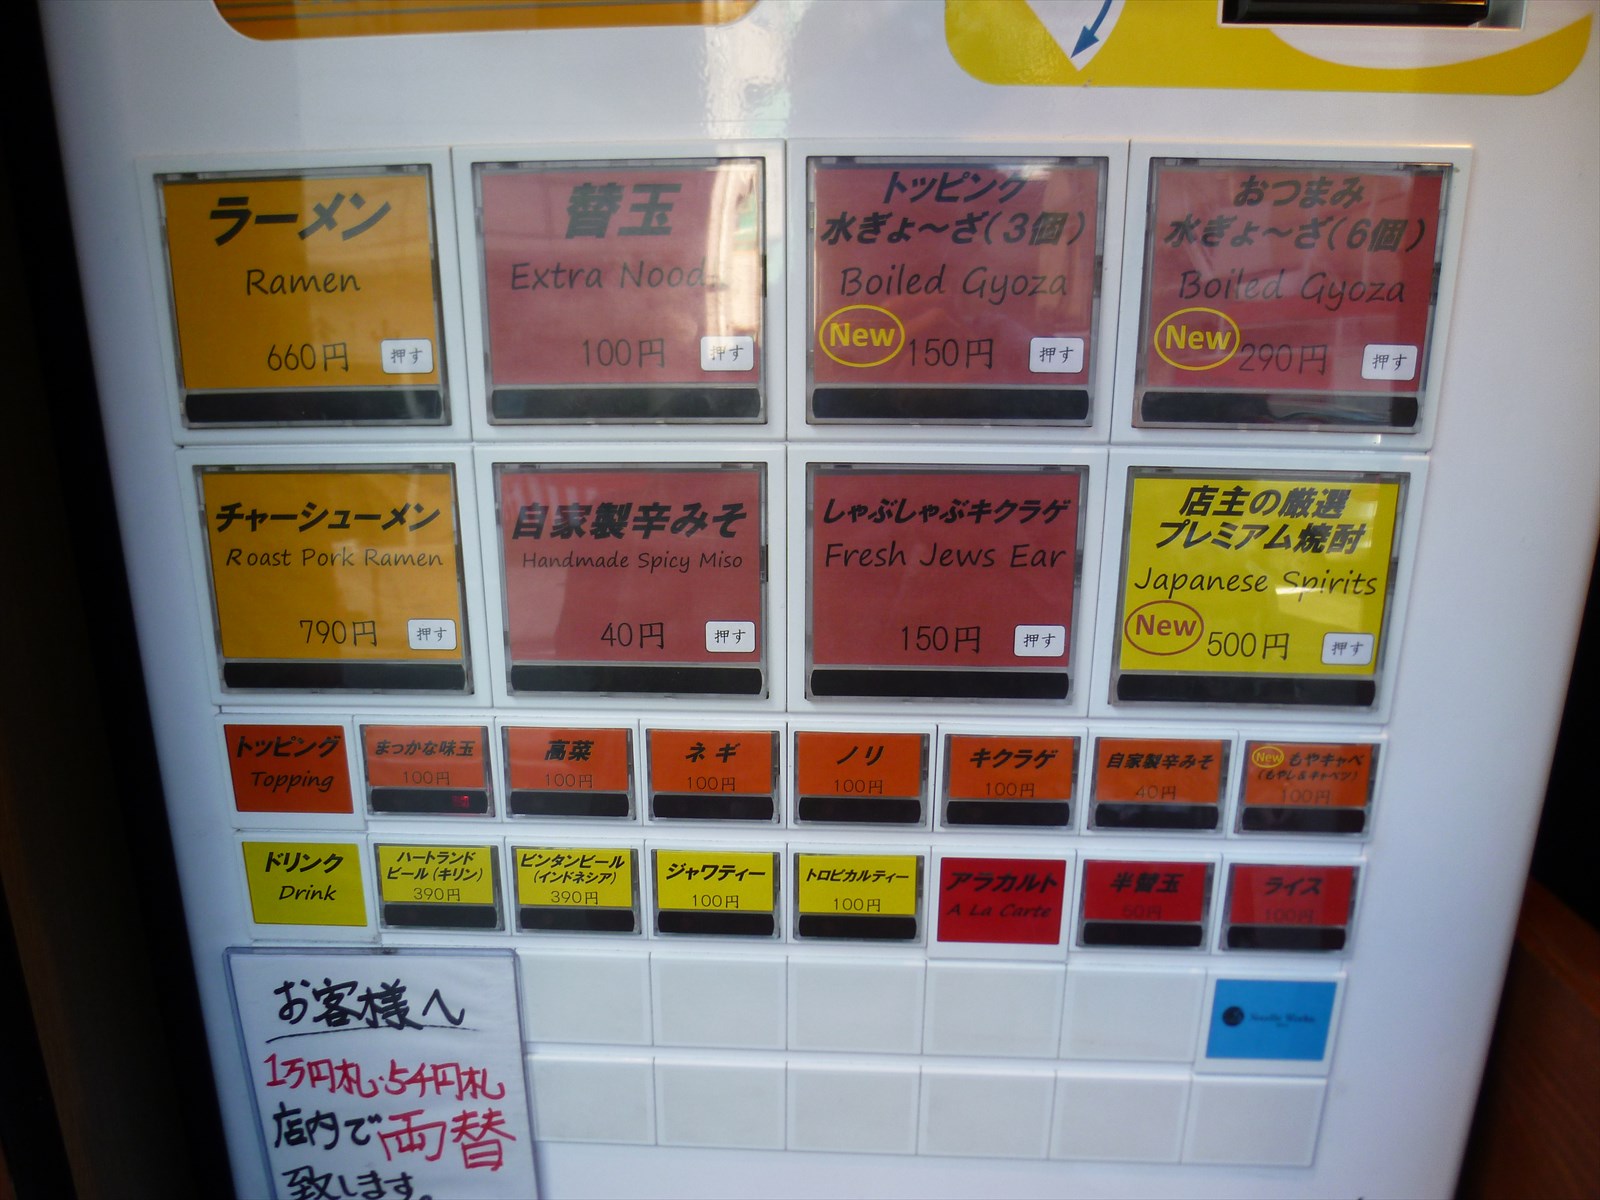 ラーメン
Ramen
660円
押す
替玉
Extra Nood
100円
押す
トッピング
水ぎょ〜ざ(3個)
Boiled Gyoza
New
150円
押す
おつまみ
水ぎょ〜ざ(6個)
Boiled Gyoza
New
290円
押す
チャーシューメン
Roast Pork Ramen
790円
押す
自家製辛みそ
Handmade Spicy Miso
40円
押す
しゃぶしゃぶキクラゲ
Fresh Jews Ear
150円
押す
店主の厳選
プレミアム焼酎
Japanese Spirits
New
500円
押す
トッピング
Topping
まっかな味玉
100円
高菜
100円
ネギ
100円
ノリ
100円
キクラゲ
100円
自家製辛みそ
40円
New もやキャベ
(もやし&キャベツ)
100円
ドリンク
Drink
ハートランド
ビール(キリン)
390円
ビンタンビール
(インドネシア)
390円
ジャワティー
100円
トロピカルティー
100円
アラカルト
A La Carte
半替玉
ライス
100円
お客様へ
1万円札・5千円札
店内で両替
致します。